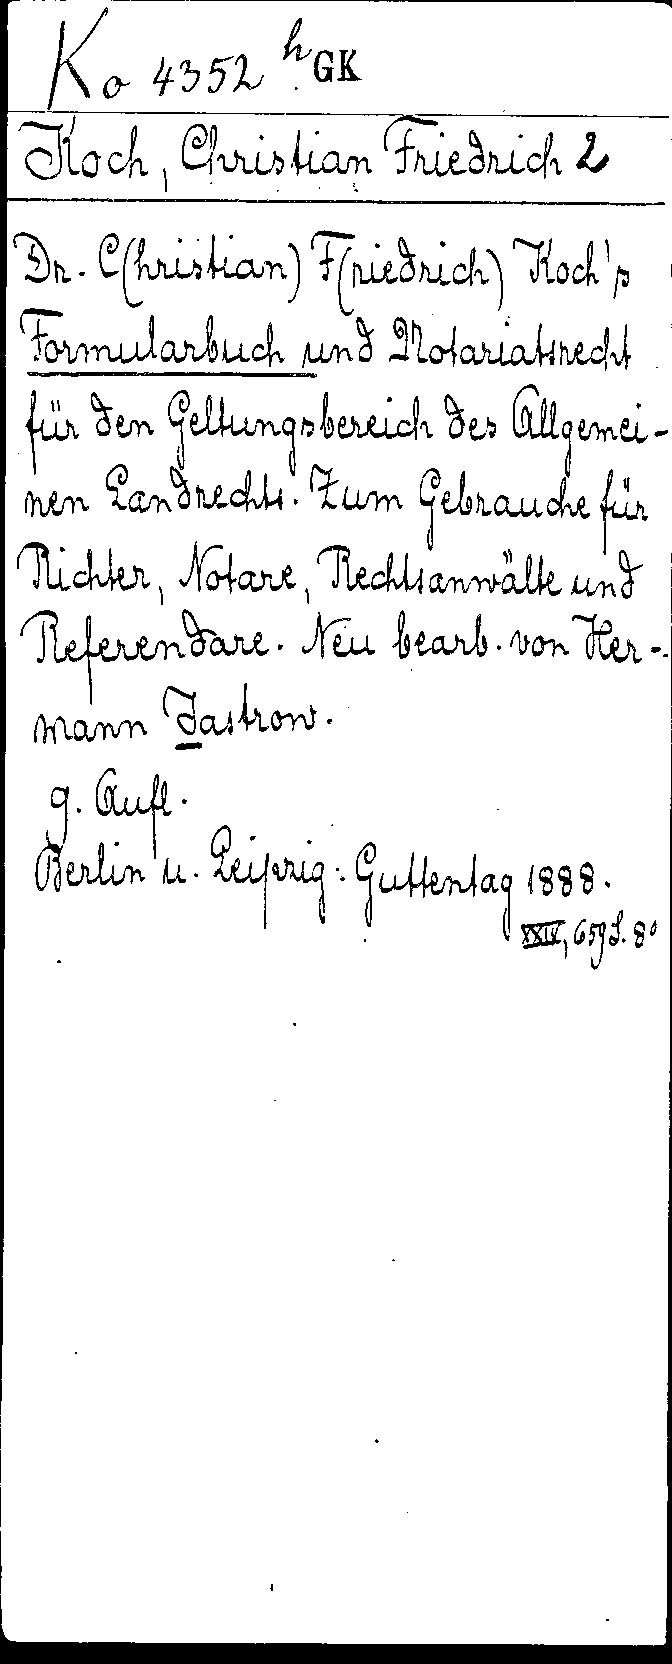 Ko 4352 h GK
Koch, Christian Friedrich 2
Dr. C(hristian) F(riedrich) Koch's
Formularbuch und Notariatsrecht
für den Geltungsbereich des Allgemei-
nen Landrechts. Zum Gebrauche für
Richter, Notare, Rechtsanwälte und
Referendare. Neu bearb. von Her-
mann Jastrow.
9. Aufl.
Berlin u. Leipzig: Guttentag 1888.
XXIV, 659 S. 8°